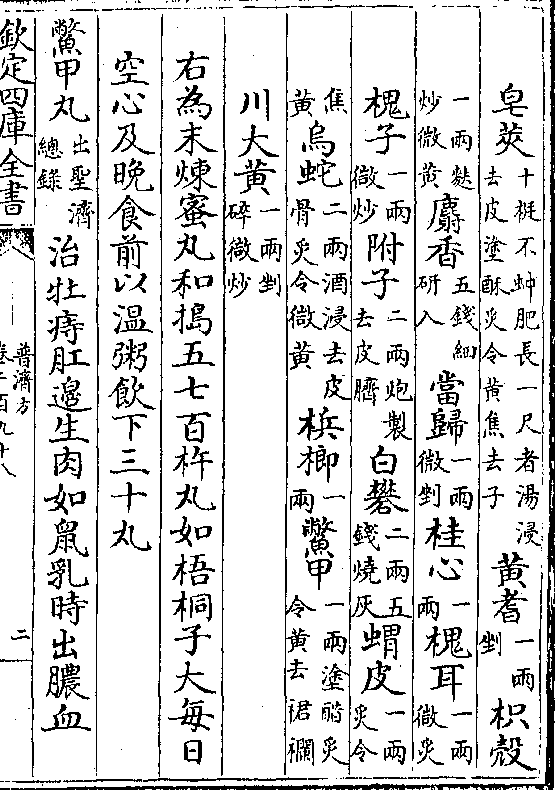 皂莢十梃不蛀肥長一尺者湯浸去皮塗酥炙令黄焦去子黄耆一兩剉枳殻
一兩麩炒微黄麝香五錢細研入當歸一兩微剉桂心一兩槐耳一兩微炙
槐子一兩微炒附子二兩炮製去皮臍白礬二兩五錢燒灰蝟皮一兩炙令
焦黄烏蛇二兩酒浸去皮骨炙令微黄梹榔一兩鱉甲一兩塗醋炙令黄去裙襴
川大黄一兩剉碎微炒
右為末煉蜜丸和搗五七百杵丸如梧桐子大每日
空心及晚食前以温粥飲下三十丸
鱉甲丸出聖濟總錄治牡痔肛邉生肉如鼠乳時出膿血
欽定四庫全書
普濟方
卷二百九十八
二